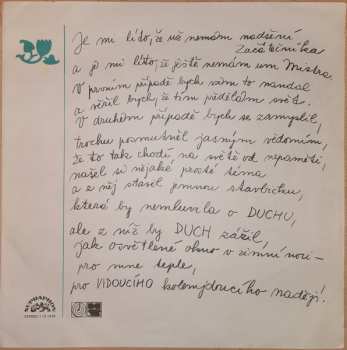 Je mi líto, že už nemám nadšení
Začátečníka
a je mi líto, že ještě nemám um Mistra.
V prvním případě bych vám to nandal
a věřil bych, že tím předělám svět.
V druhém případě bych se zamyslil,
trochu posmutněl jasným vědomím,
že to tak chodí, na světě od nepaměti,
našel si nějaké prosté téma
a z něj stavěl jemnou stavbičku,
která by nemluvila o DUCHU,
ale z níž by DUCH zářil,
jak osvětlené okno v zimní noci –
pro mne teplé,
pro VIDOUCÍHO kolemjdoucího nadějí!
SUPRAPHON